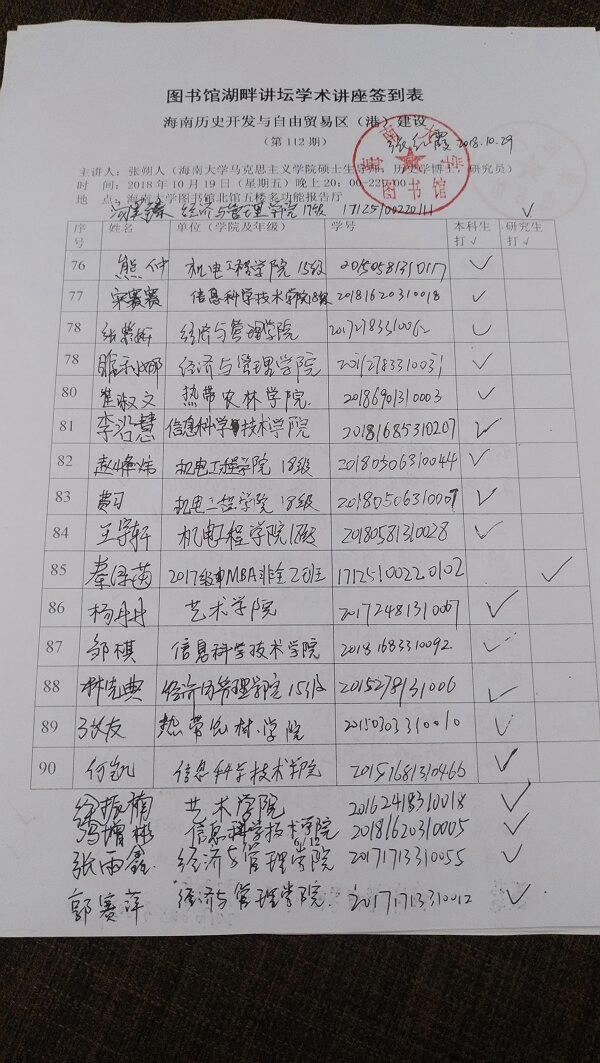 图书馆湖畔讲坛学术讲座签到表
海南历史开发与自由贸易区（港）建设
（第 112 期） 张红霞 2018.10.29
主讲人：张朔人（海南大学马克思主义学院硕士生导师，历史学博士，研究员）
时 间：2018 年 10 月 19 日（星期五）晚上 20：00-22：00
地 点：海南大学图书馆北馆五楼多功能报告厅
经济与管理学院17级 17125100220111 √
序号 姓名 单位（学院及年级） 学号 本科生打√ 研究生打√
76 熊仲 机电工程学院15级 20150581310117 √
77 宋赛赛 信息科学技术学院18级 20181620310018 √
78 经济与管理学院 20172783310062 √
78 经济与管理学院 √
80 崔淑文 热带农林学院. 20186901310003 √
81 李沿慧 信息科学技术学院 20181685310207 √
82 赵峰炜 机电工程学院18级 20180506310044 √
83 黄习 机电工程学院18级 20180506310007 √
84 王宇轩 机电工程学院18级 20180581310028 √
85 秦泽茵 2017级MBA非全2班 17125100220102 √
86 杨冉冉 艺术学院 20172481310007 √
87 邹棋 信息科学技术学院 20181683310092 √
88 林先典 经济与管理学院15级 2015278131006 √
89 张友 热带农林学院 20150303310010 √
90 何凯 信息科学技术学院 20151681310466 √
徐振楠 艺术学院 20162418310018 √
冯增彬 信息科学技术学院 20181620310005 √
张雨鑫 经济与管理学院 20171713310055 √
郭赛萍 经济与管理学院. 20171713310012 √